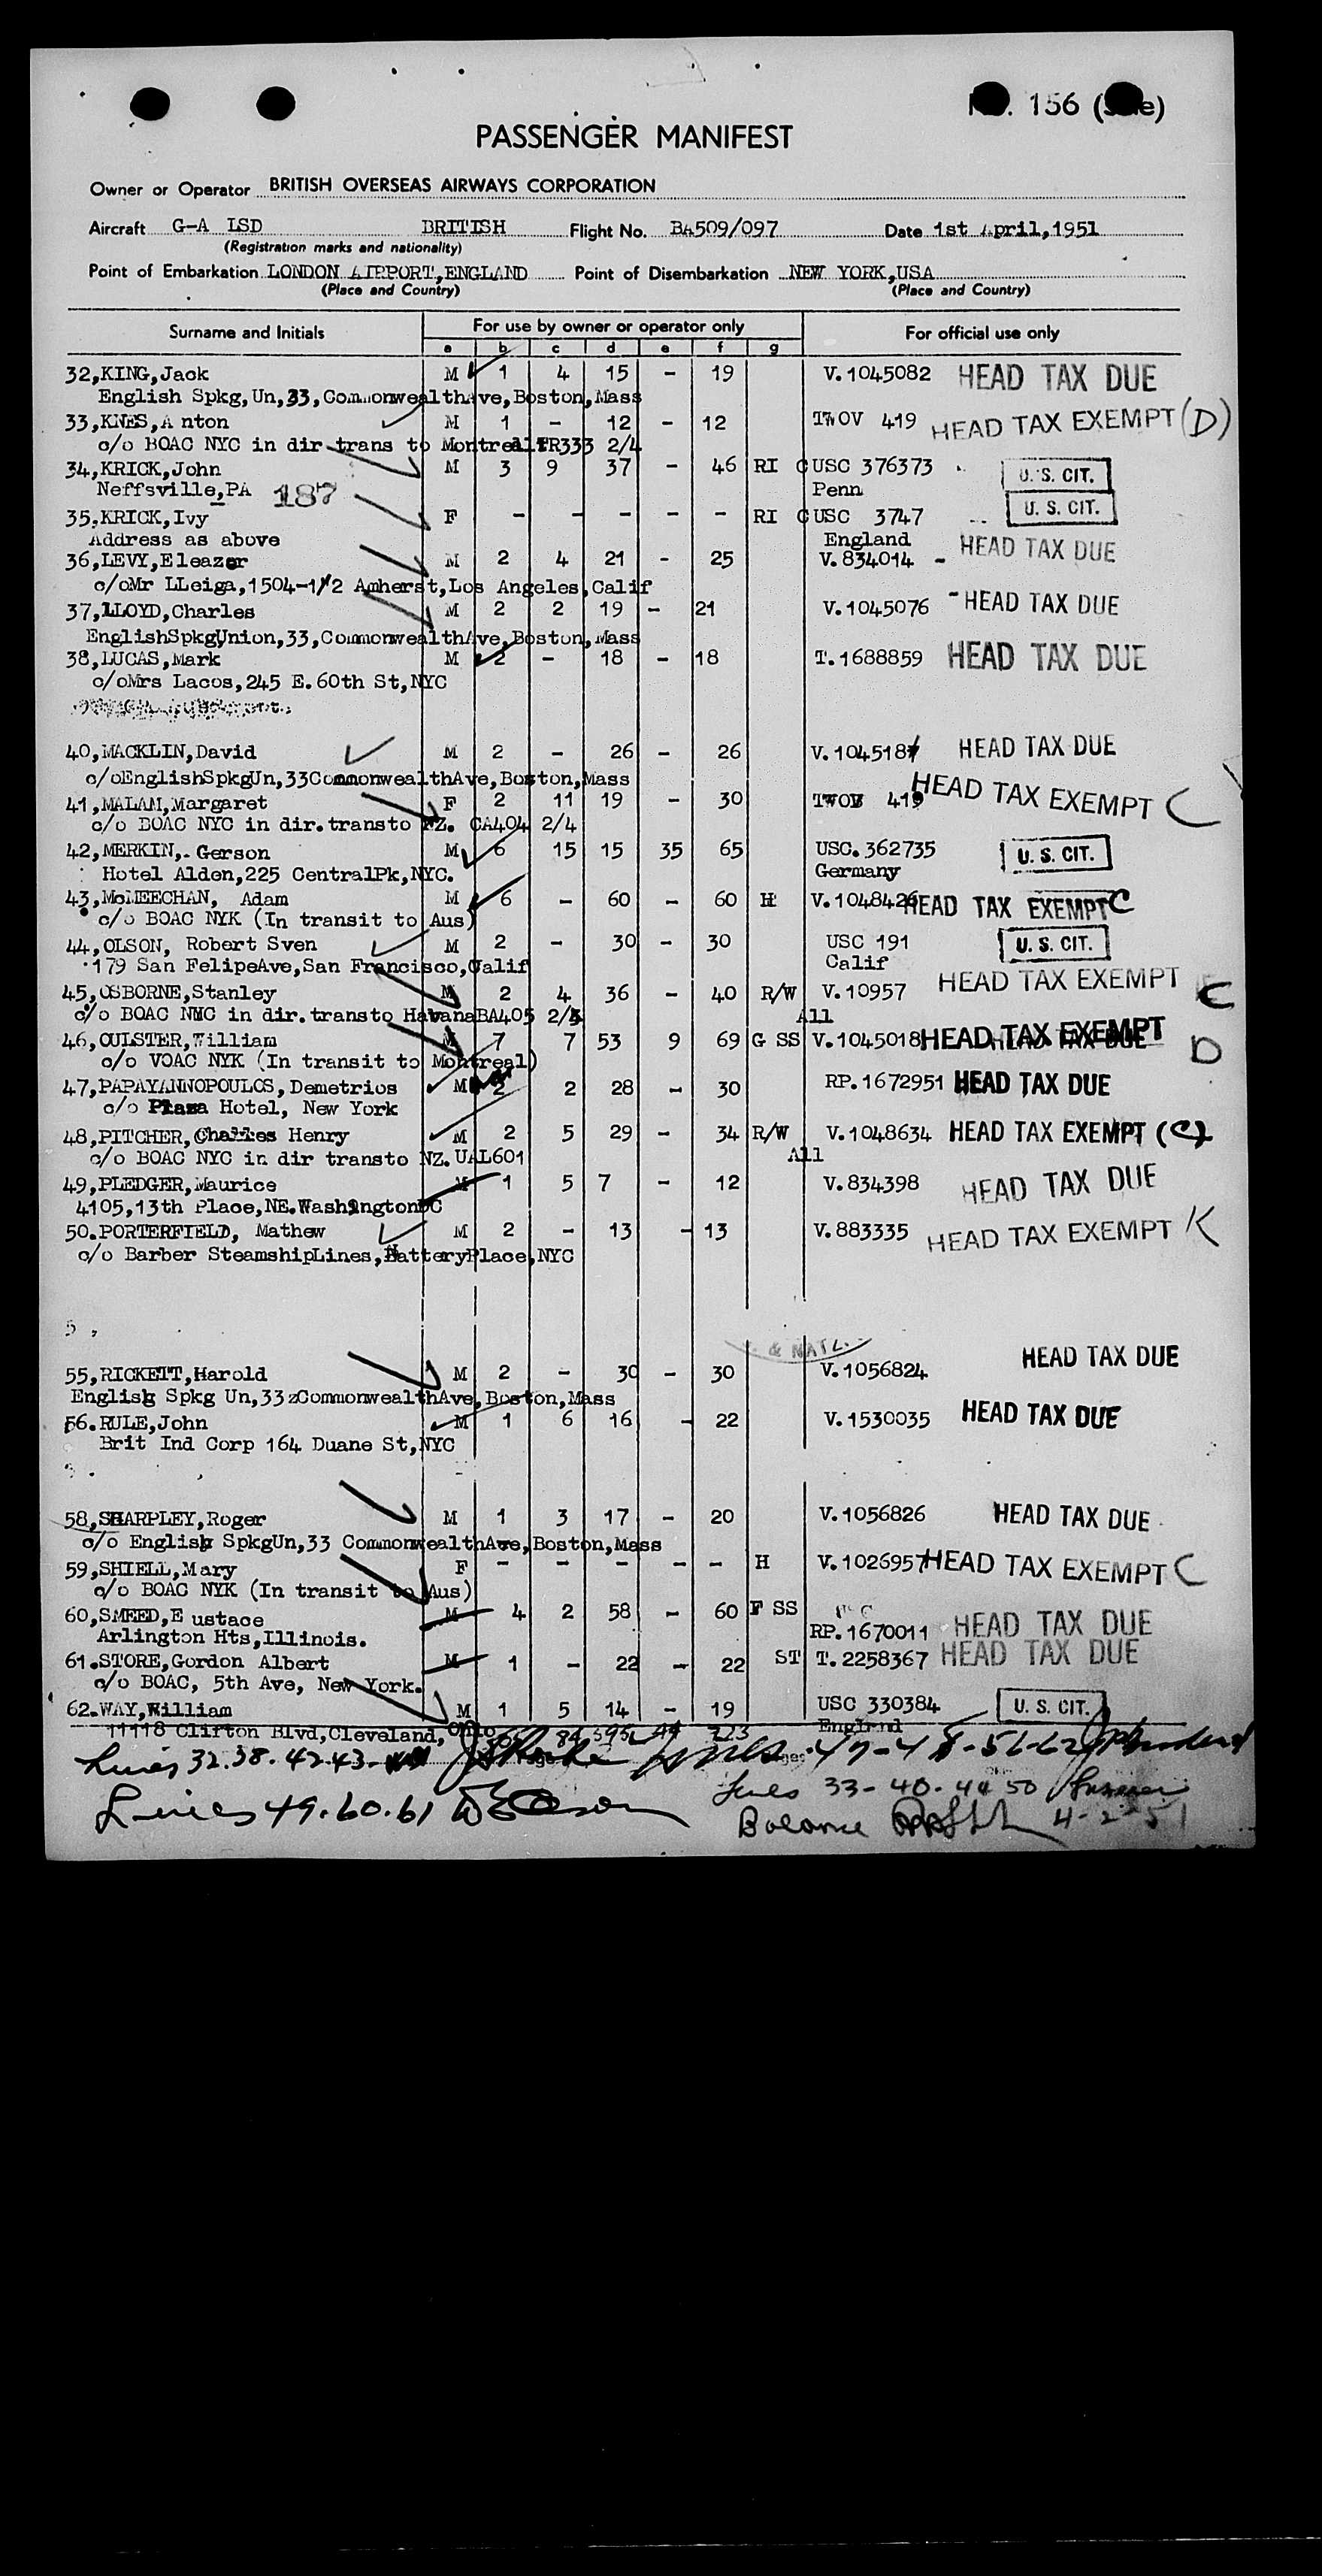 No. 156 (
PASSENGER MANIFEST
Owner or Operator BRITISH OVERSEAS AIRWAYS CORPORATION
Aircraft G-A LSD BRITISH Flight No. B4509/097 Date 1st April,1951
(Registration marks and nationality)
Point of Embarkation LONDON AIRPORT,ENGLAND Point of Disembarkation NEW YORK,USA
(Place and Country) (Place and Country)
Surname and Initials For use by owner or operator only For official use only
a b c d e f g
32,KING,Jack M 1 4 15 - 19 V.1045082 HEAD TAX DUE
English Spkg,Un,33,CommonwealthAve,Boston,Mass
33,KNES,A nton M 1 - 12 - 12 TWOV 419 HEAD TAX EXEMPT (D)
c/o BOAC NYC in dir trans to Montreal TR333 2/4
34,KRICK,John M 3 9 37 - 46 RI C USC 376373 U. S. CIT.
Neffsville,PA 187 Penn
35,KRICK,Ivy F - - - - - RI C USC 3747 U. S. CIT.
Address as above England
36,LEVY,Eleazer M 2 4 21 - 25 V.834014 - HEAD TAX DUE
c/oMr LLeiga,1504-1/2 Amherst,Los Angeles,Calif
37,LLOYD,Charles M 2 2 19 - 21 V.1045076 - HEAD TAX DUE
EnglishSpkgUnion,33,CommonwealthAve,Boston,Mass
38,LUCAS,Mark M 2 - 18 - 18 T.1688859 HEAD TAX DUE
c/oMrs Lacos,245 E.60th St,NYC
40,MACKLIN,David M 2 - 26 - 26 V.104518 HEAD TAX DUE
c/oEnglishSpkgUn,33CommonwealthAve,Boston,Mass
41,MALAM,Margaret F 2 11 19 - 30 TWOV 419 HEAD TAX EXEMPT C
c/o BOAC NYC in dir.transto NZ. CA404 2/4
42,MERKIN,. Gerson M 6 15 15 35 65 USC.362735 U. S. CIT.
Hotel Alden,225 CentralPk,NYC. Germany
43,McMEECHAN, Adam M 6 - 60 - 60 H V.1048426 HEAD TAX EXEMPT C
c/o BOAC NYK (In transit to Aus)
44,OLSON, Robert Sven M 2 - 30 - 30 USC 191 U. S. CIT.
179 San FelipeAve,San Francisco,Calif Calif
45,OSBORNE,Stanley M 2 4 36 - 40 R/W V.10957 HEAD TAX EXEMPT C
c/o BOAC NYC in dir.transto HavanaBA405 2/ All
46,OULSTER,William M 7 7 53 9 69 G SS V.1045018 HEAD TAX EXEMPT D
c/o VOAC NYK (In transit to Montreal)
47,PAPAYANNOPOULOS,Demetrios M 2 2 28 - 30 RP.1672951 HEAD TAX DUE
c/o Plaza Hotel, New York
48,PITCHER,Charles Henry M 2 5 29 - 34 R/W V.1048634 HEAD TAX EXEMPT (C)
c/o BOAC NYC in dir transto NZ.UAL601 All
49,PLEDGER,Maurice M 1 5 7 - 12 V.834398 HEAD TAX DUE
4105,13th Place,NE.WashingtonDC
50.PORTERFIELD, Mathew M 2 - 13 - 13 V.883335 HEAD TAX EXEMPT K
c/o Barber SteamshipLines,BatteryPlace,NYC
& NATZ.
55,RICKETT,Harold M 2 - 30 - 30 V.1056824 HEAD TAX DUE
English Spkg Un,33 CommonwealthAve,Boston,Mass
56.RULE,John M 1 6 16 - 22 V.1530035 HEAD TAX DUE
Brit Ind Corp 164 Duane St,NYC
58,SHARPLEY,Roger M 1 3 17 - 20 V.1056826 HEAD TAX DUE
c/o English SpkgUn,33 CommonwealthAve,Boston,Mass
59,SHIELL,Mary F - - - - - H V.1026957 HEAD TAX EXEMPT C
c/o BOAC NYK (In transit to Aus)
60,SMEED,E ustace M 4 2 58 - 60 F SS RP.1670011 HEAD TAX DUE
Arlington Hts,Illinois.
61.STORE,Gordon Albert M 1 - 22 - 22 ST T.2258367 HEAD TAX DUE
c/o BOAC, 5th Ave, New York.
62.WAY,William M 1 5 14 - 19 USC 330384 U. S. CIT.
11118 Clifton Blvd,Cleveland,Ohio England
Lines 32.38.42.43- Lines 47-48-56-62
Lines 33-40-44 50
Lines 49.60.61
Balance 4-2-51